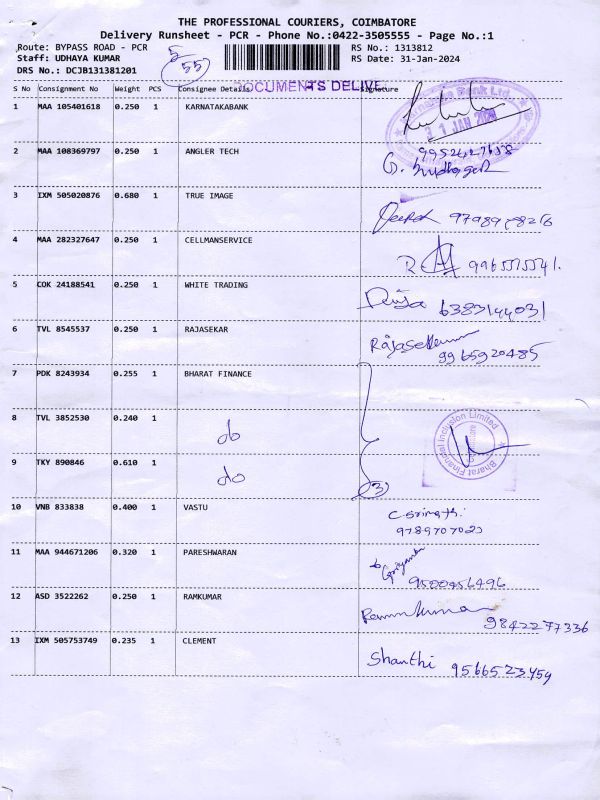 THE PROFESSIONAL COURIERS, COIMBATORE
Delivery Runsheet - PCR - Phone No.:0422-3505555 - Page No.:1
Route: BYPASS ROAD - PCR
RS No.: 1313812
Staff: UDHAYA KUMAR
RS Date: 31-Jan-2024
DRS No.: DCJB131381201
5
55
DOCUMENTS DELIVE
S No Consignment No Weight PCS Consignee Details Signature
1 MAA 105401618 0.250 1 KARNATAKABANK
Bank Ltd.
31 JAN
2 MAA 108369797 0.250 1 ANGLER TECH
3 IXM 505020876 0.680 1 TRUE IMAGE
Deepak
4 MAA 282327647 0.250 1 CELLMANSERVICE
5 COK 24188541 0.250 1 WHITE TRADING
6383144031
6 TVL 8545537 0.250 1 RAJASEKAR
Rajasekaran
9965920485
7 PDK 8243934 0.255 1 BHARAT FINANCE
8 TVL 3852530 0.240 1 do
Bharat Financial Inclusion Limited
9 TKY 890846 0.610 1 do
3
10 VNB 833838 0.400 1 VASTU
C. Srinath.
9789707023
11 MAA 944671206 0.320 1 PARESHWARAN
9500456496
12 ASD 3522262 0.250 1 RAMKUMAR
Ramkumar
9842277336
13 IXM 505753749 0.235 1 CLEMENT
Shanthi 9566523459